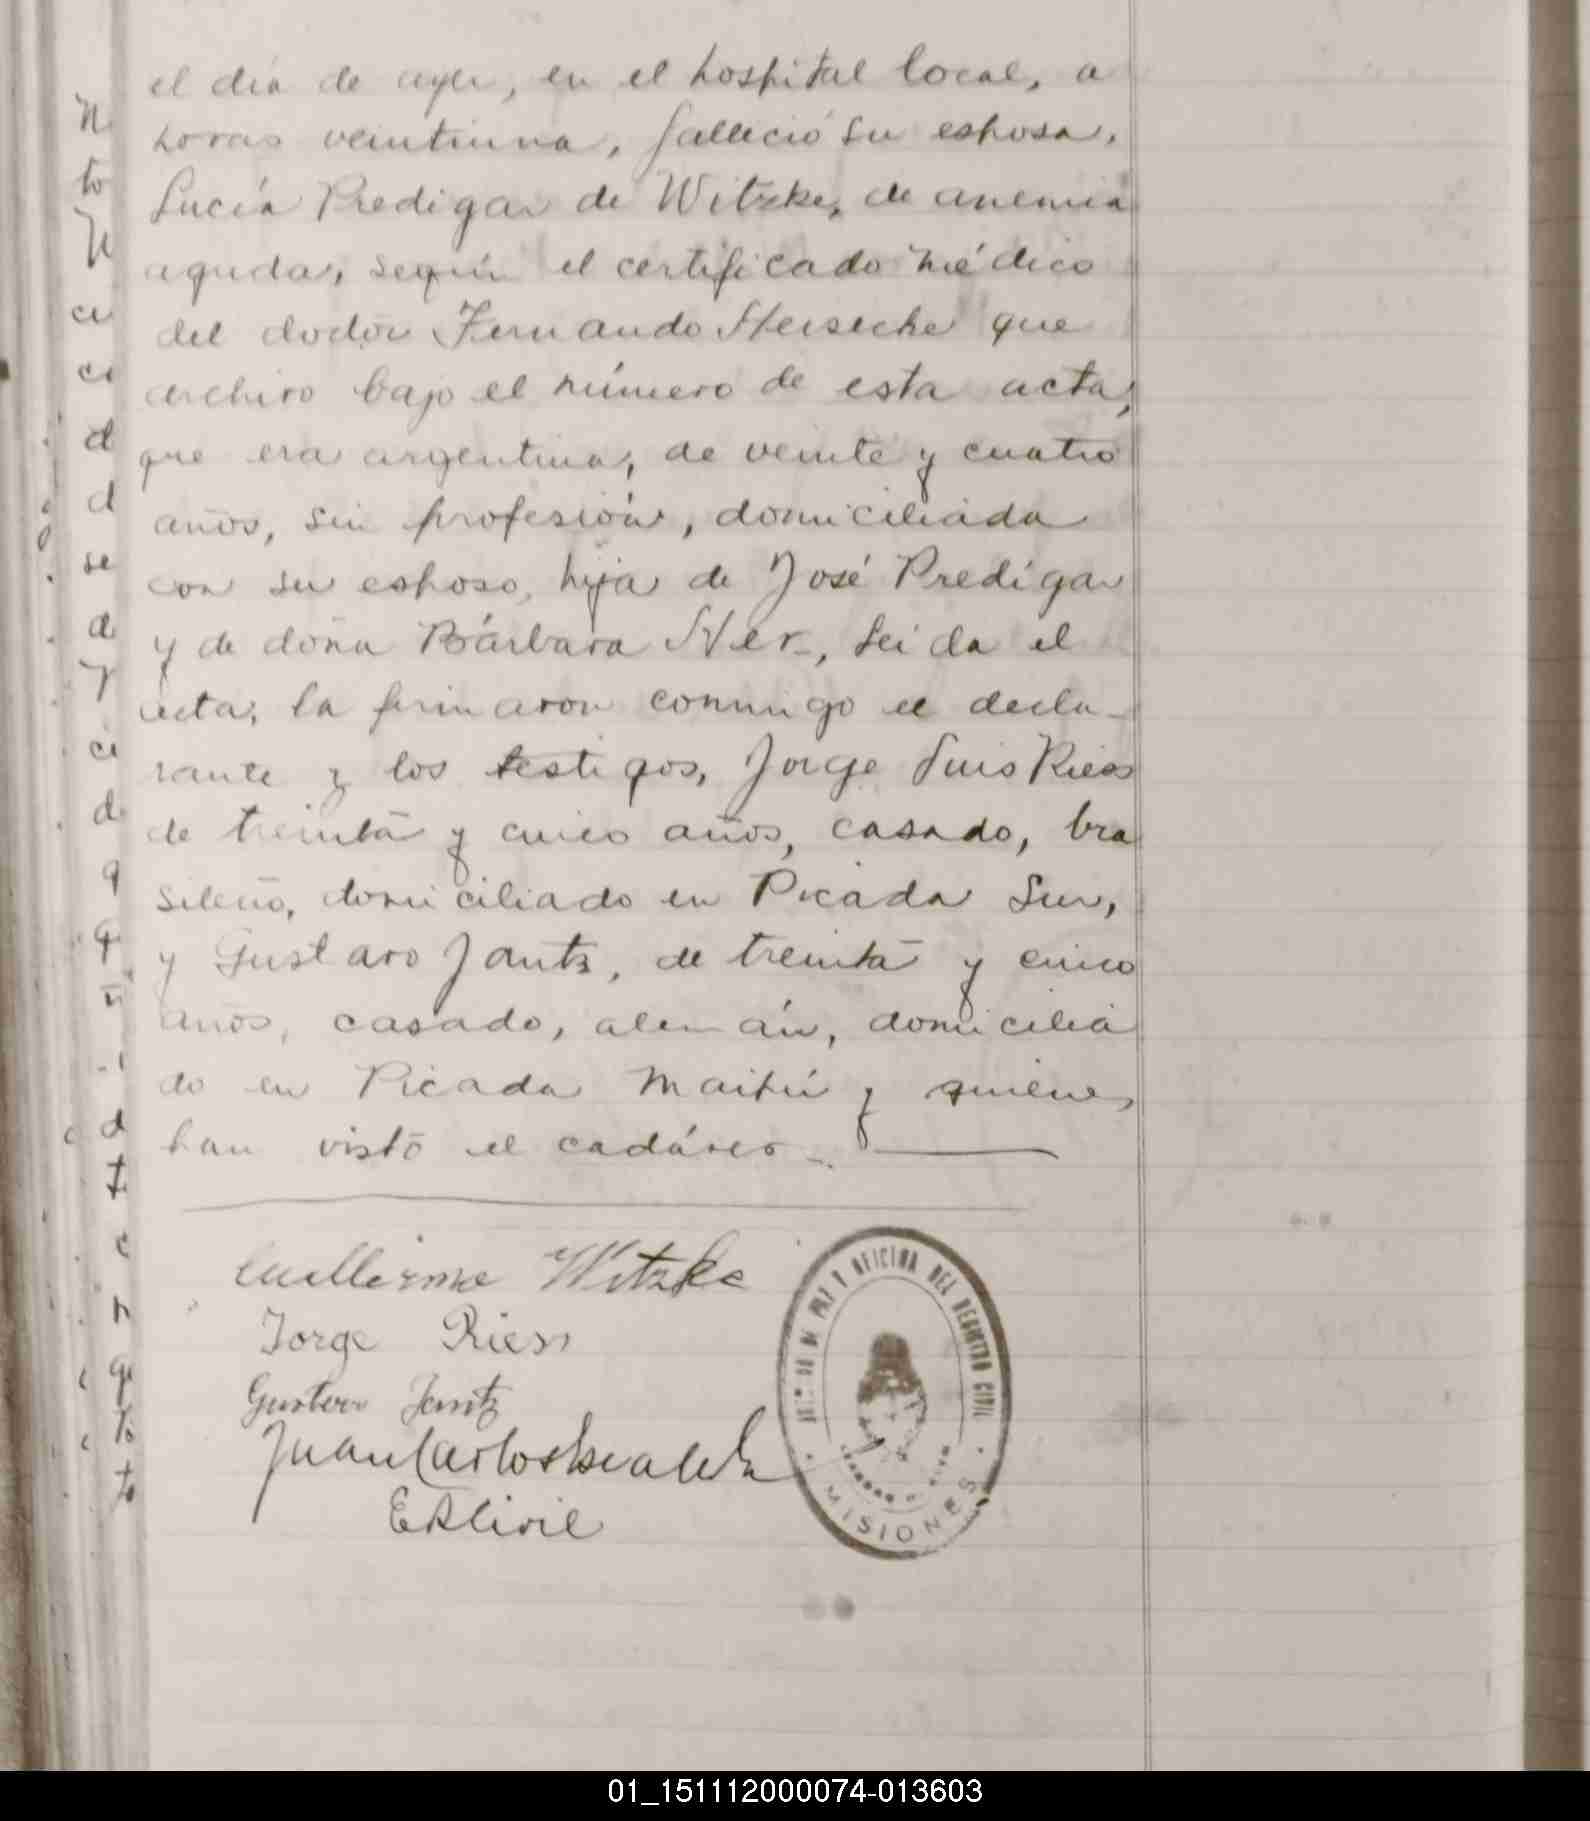 el día de ayer, en el hospital local, a
horas veintiuna, falleció su esposa,
Lucía Predigar de Witzke, de anemia
aguda, según el certificado médico
del doctor Fernando que
archivo bajo el número de esta acta,
que era argentina, de veinte y cuatro
años, sin profesión, domiciliada
con su esposo, hija de José Predigar
y de doña Bárbara Leida el
acta, la firmaron conmigo el decla-
rante y los testigos, Jorge Luis Riess
de treinta y cinco años, casado, bra
sileño, domiciliado en Picada Sur,
y Gustavo Jantz, de treinta y cinco
años, casado, alemán, domicilia
do en Picada Maipú y quienes
han visto el cadáver.
Guillermo Witzke
Jorge Riess
Gustavo Jantz
Juan Carlos
DE PAZ Y OFICINA DEL REGISTRO CIVIL
MISIONES
01_151112000074-013603